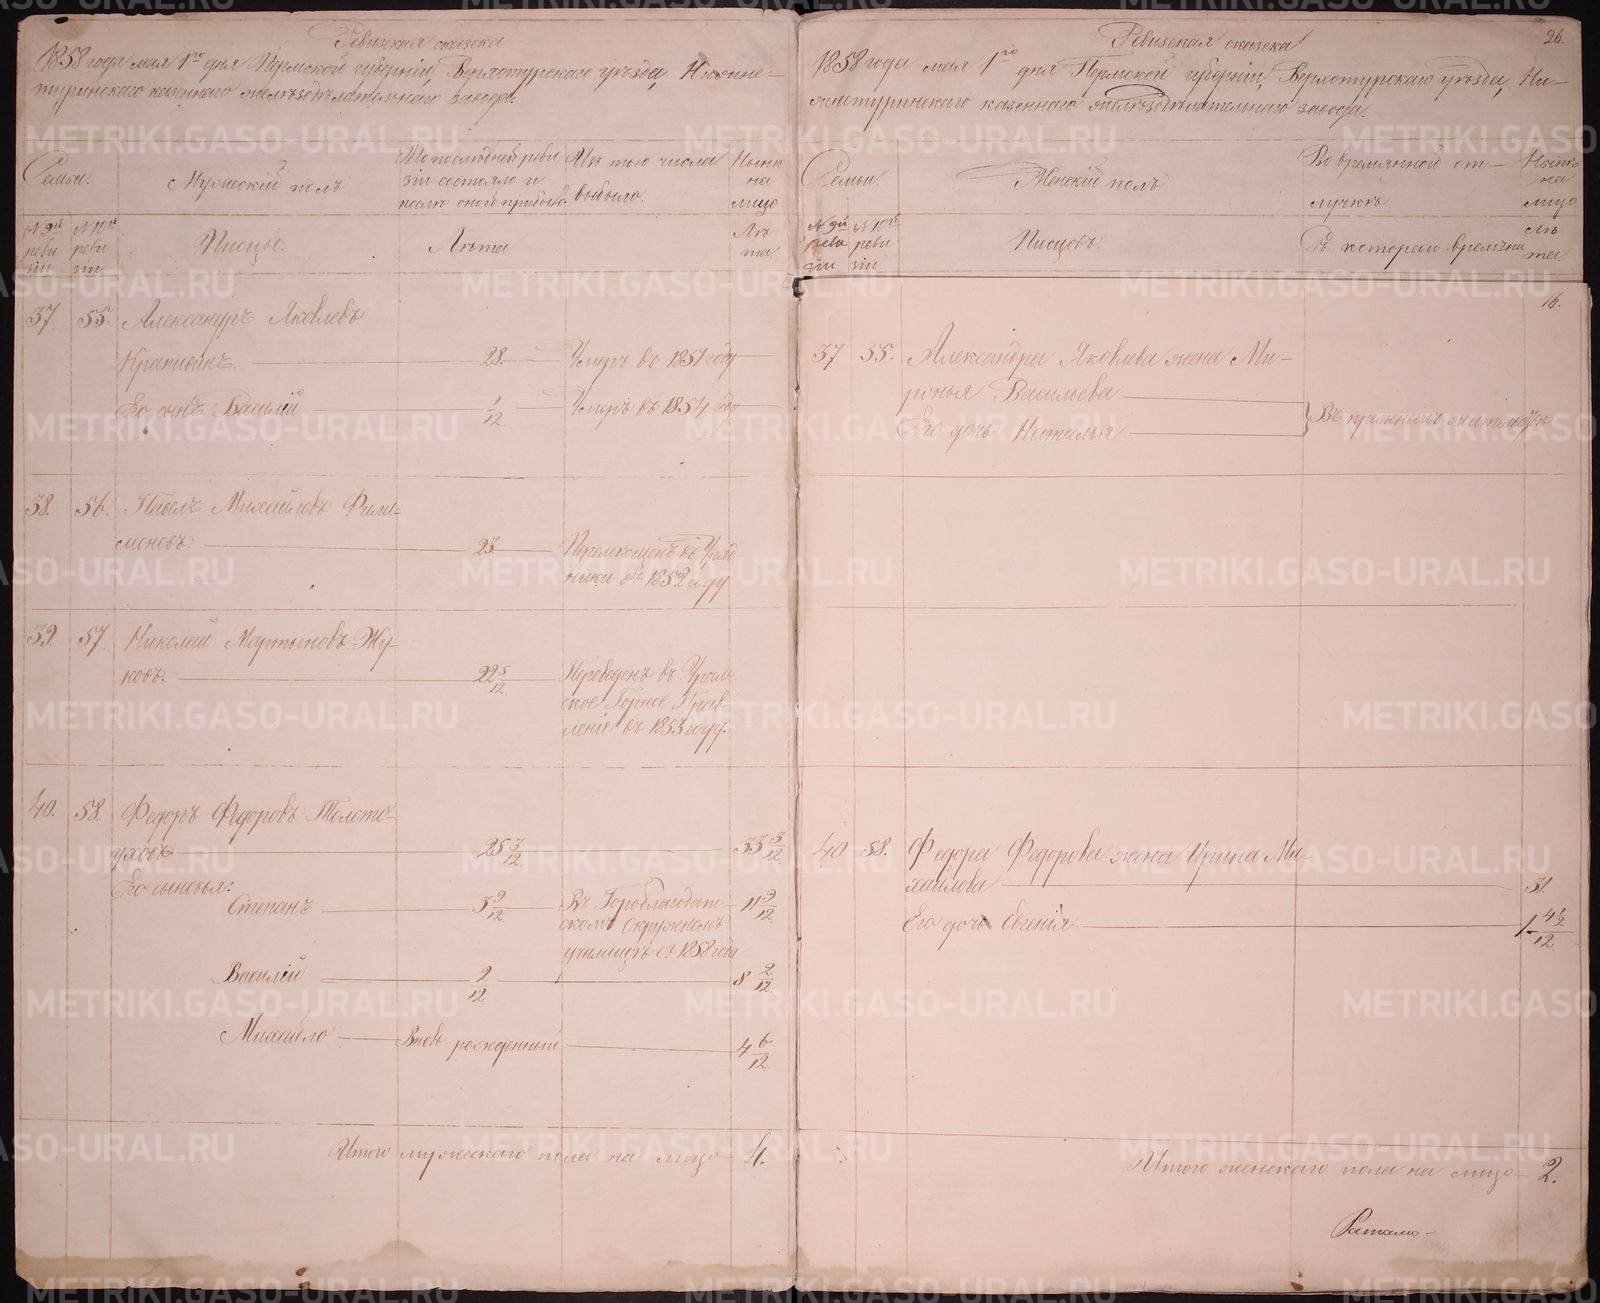 Ревизская сказка
1858 года мая 1го дня Пермской губерніи Верхотурскаго уѣзда, Нижне-
туринскаго казеннаго желѣзодѣлательнаго завода.
Семьи.
Мужескій полъ
По послѣдней реви
зіи состояло и
послѣ оной прибыло
Изъ того числа
выбыло.
Нынѣ
на
лицо
№ 9й
реви
зіи
№ 10й
реви
зіи
Писцы.
Лѣта
Лѣ
та
37 55. Александръ Яковлевъ
28. Умеръ въ 1851 году
Его сынъ Василій 1/12 Умеръ въ 1854 году
38. 56. Павелъ Михайловъ Фили-
моновъ 23 Перемѣщенъ въ Уряд
ники въ 1852 году
39. 57. Николай Мартыновъ Жу-
ковъ. 22 5/12 Переведенъ въ Ураль
ское Горное Прав-
леніе въ 1853 году.
40. 58. Федоръ Федоровъ Толсто-
уховъ 25 3/12 33 3/12
Его сыновья:
Степанъ 3 9/12 Въ Гороблагодат- 11 9/12
скомъ Окружномъ
училищѣ съ 1858 года
Василій 2/12 8 2/12
Михайло Вновь рожденный 4 6/12
Итого мужескаго пола на лицо 4.
Ревизская сказка
26.
1858 года мая 1го дня Пермской губерніи, Верхотурскаго уѣзда, Ни-
жнетуринскаго казеннаго желѣзодѣлательнаго завода.
Семьи
Женскій полъ
Во временной от-
лучкѣ
Нынѣ
на
лицо
№ 9й
реви
зіи
№ 10й
реви
зіи
Писцовъ
Съ котораго времени
лѣ
та.
16.
37 55. Александра Яковлева жена
Васильева
Его дочь Наталья
40 58. Федора Федорова жена Ирина Ми-
хайлова 31
Его дочь Евгенія 1 4½/12
Итого женскаго пола на лицо 2.
METRIKI.GASO-URAL.RU